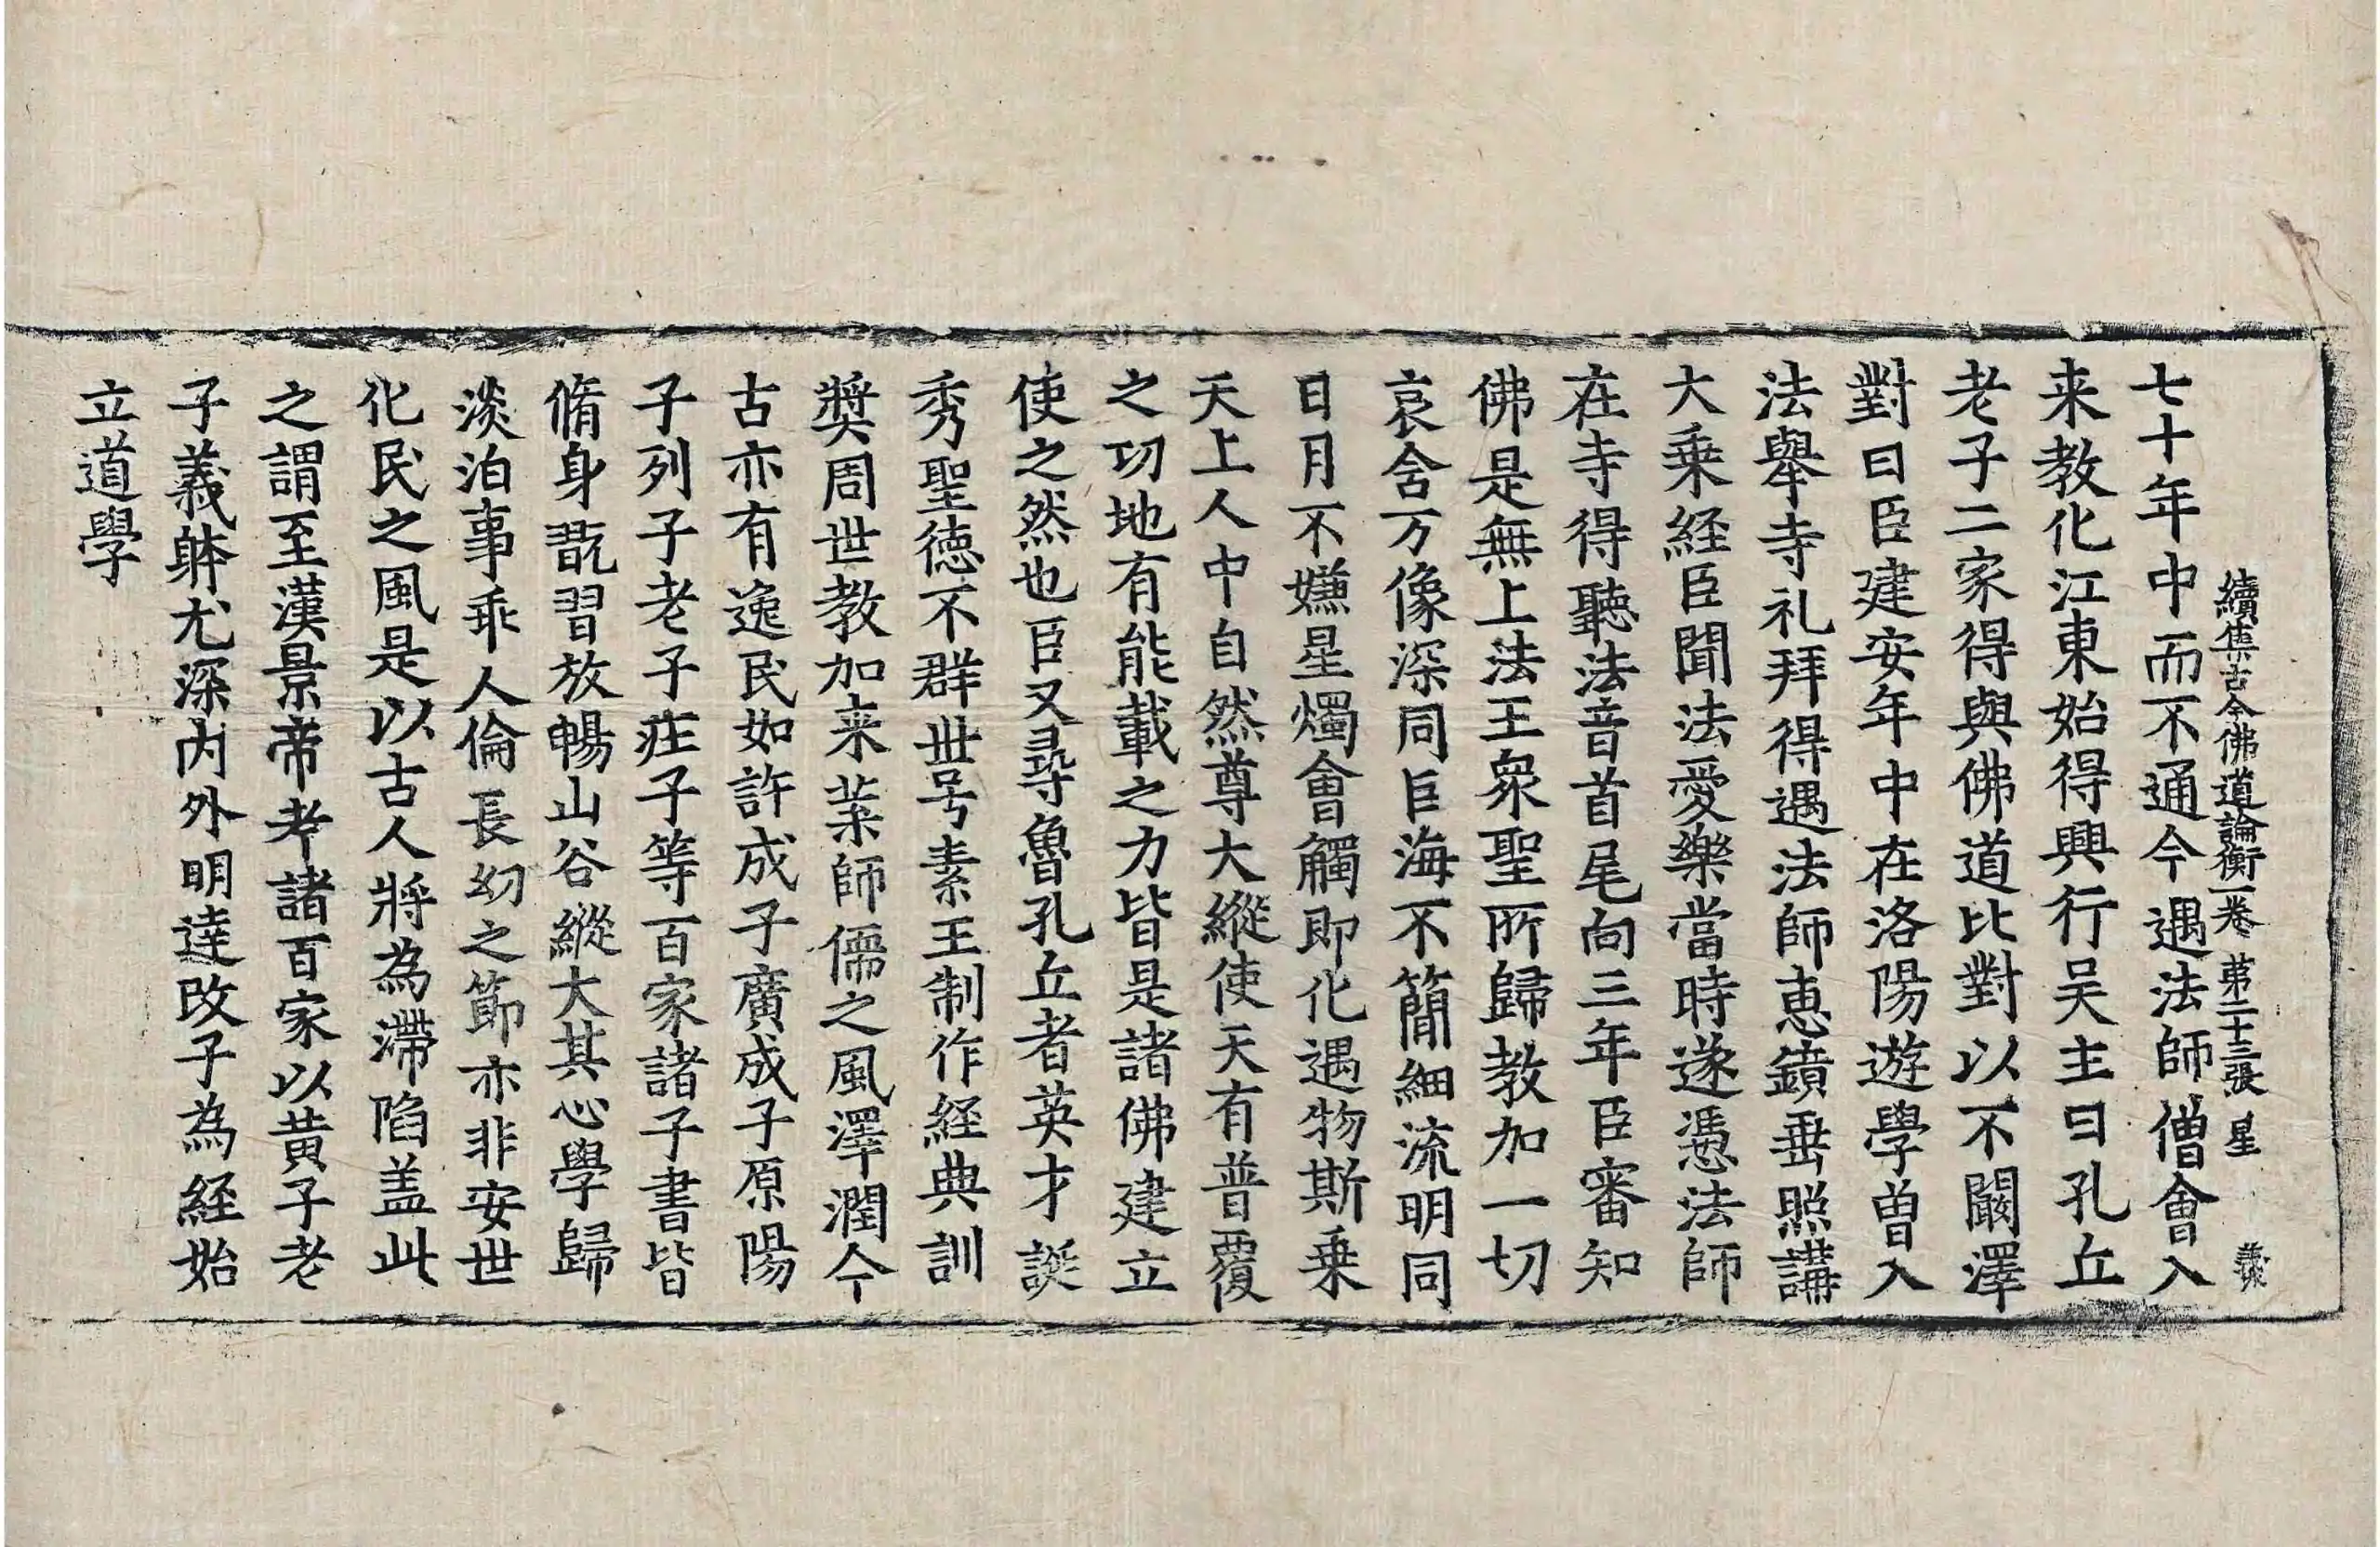 續集古今佛道論衡一卷 第二十三張 星
七十年中而不通今遇法師僧會入
来教化江東始得興行吴主曰孔丘
老子二家得與佛道比對以不闞澤
對曰臣建安年中在洛陽遊學曽入
法舉寺礼拜得遇法師恵鐼垂照講
大乗経臣聞法愛樂當時遂憑法師
在寺得聽法音首尾向三年臣審知
佛是無上法王衆聖所歸教加一切
哀含万像深同巨海不簡細流明同
日月不嫌星燭會觸即化遇物斯乗
天上人中自然尊大縱使天有普覆
之功地有能載之力皆是諸佛建立
使之然也臣又尋魯孔丘者英才誕
秀聖德不群世号素王制作経典訓
奬周世教加来葉師儒之風澤潤今
古亦有逸民如許成子廣成子原陽
子列子老子庄子等百家諸子書皆
脩身翫習放暢山谷縱大其心學歸
淡泊事乖人倫長㓜之節亦非安世
化民之風是以古人將為滯陷盖此
之謂至漢景帝考諸百家以黄子老
子義躰尤深内外明達改子為経始
立道學